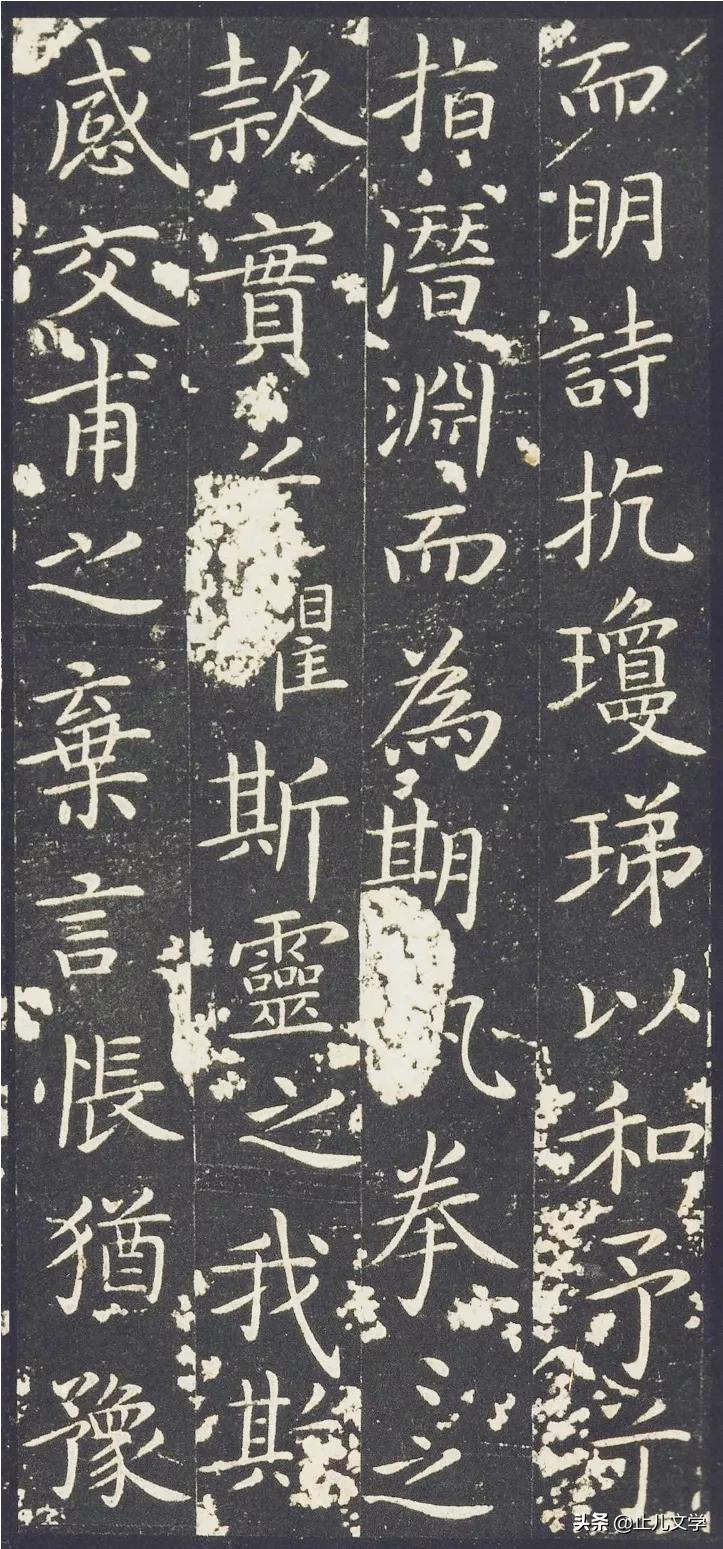 而明詩抗瓊珶以和予兮
指潛淵而為期拳〻之
款實懼斯靈之我欺
感交甫之棄言悵猶豫
头条 @止儿文学